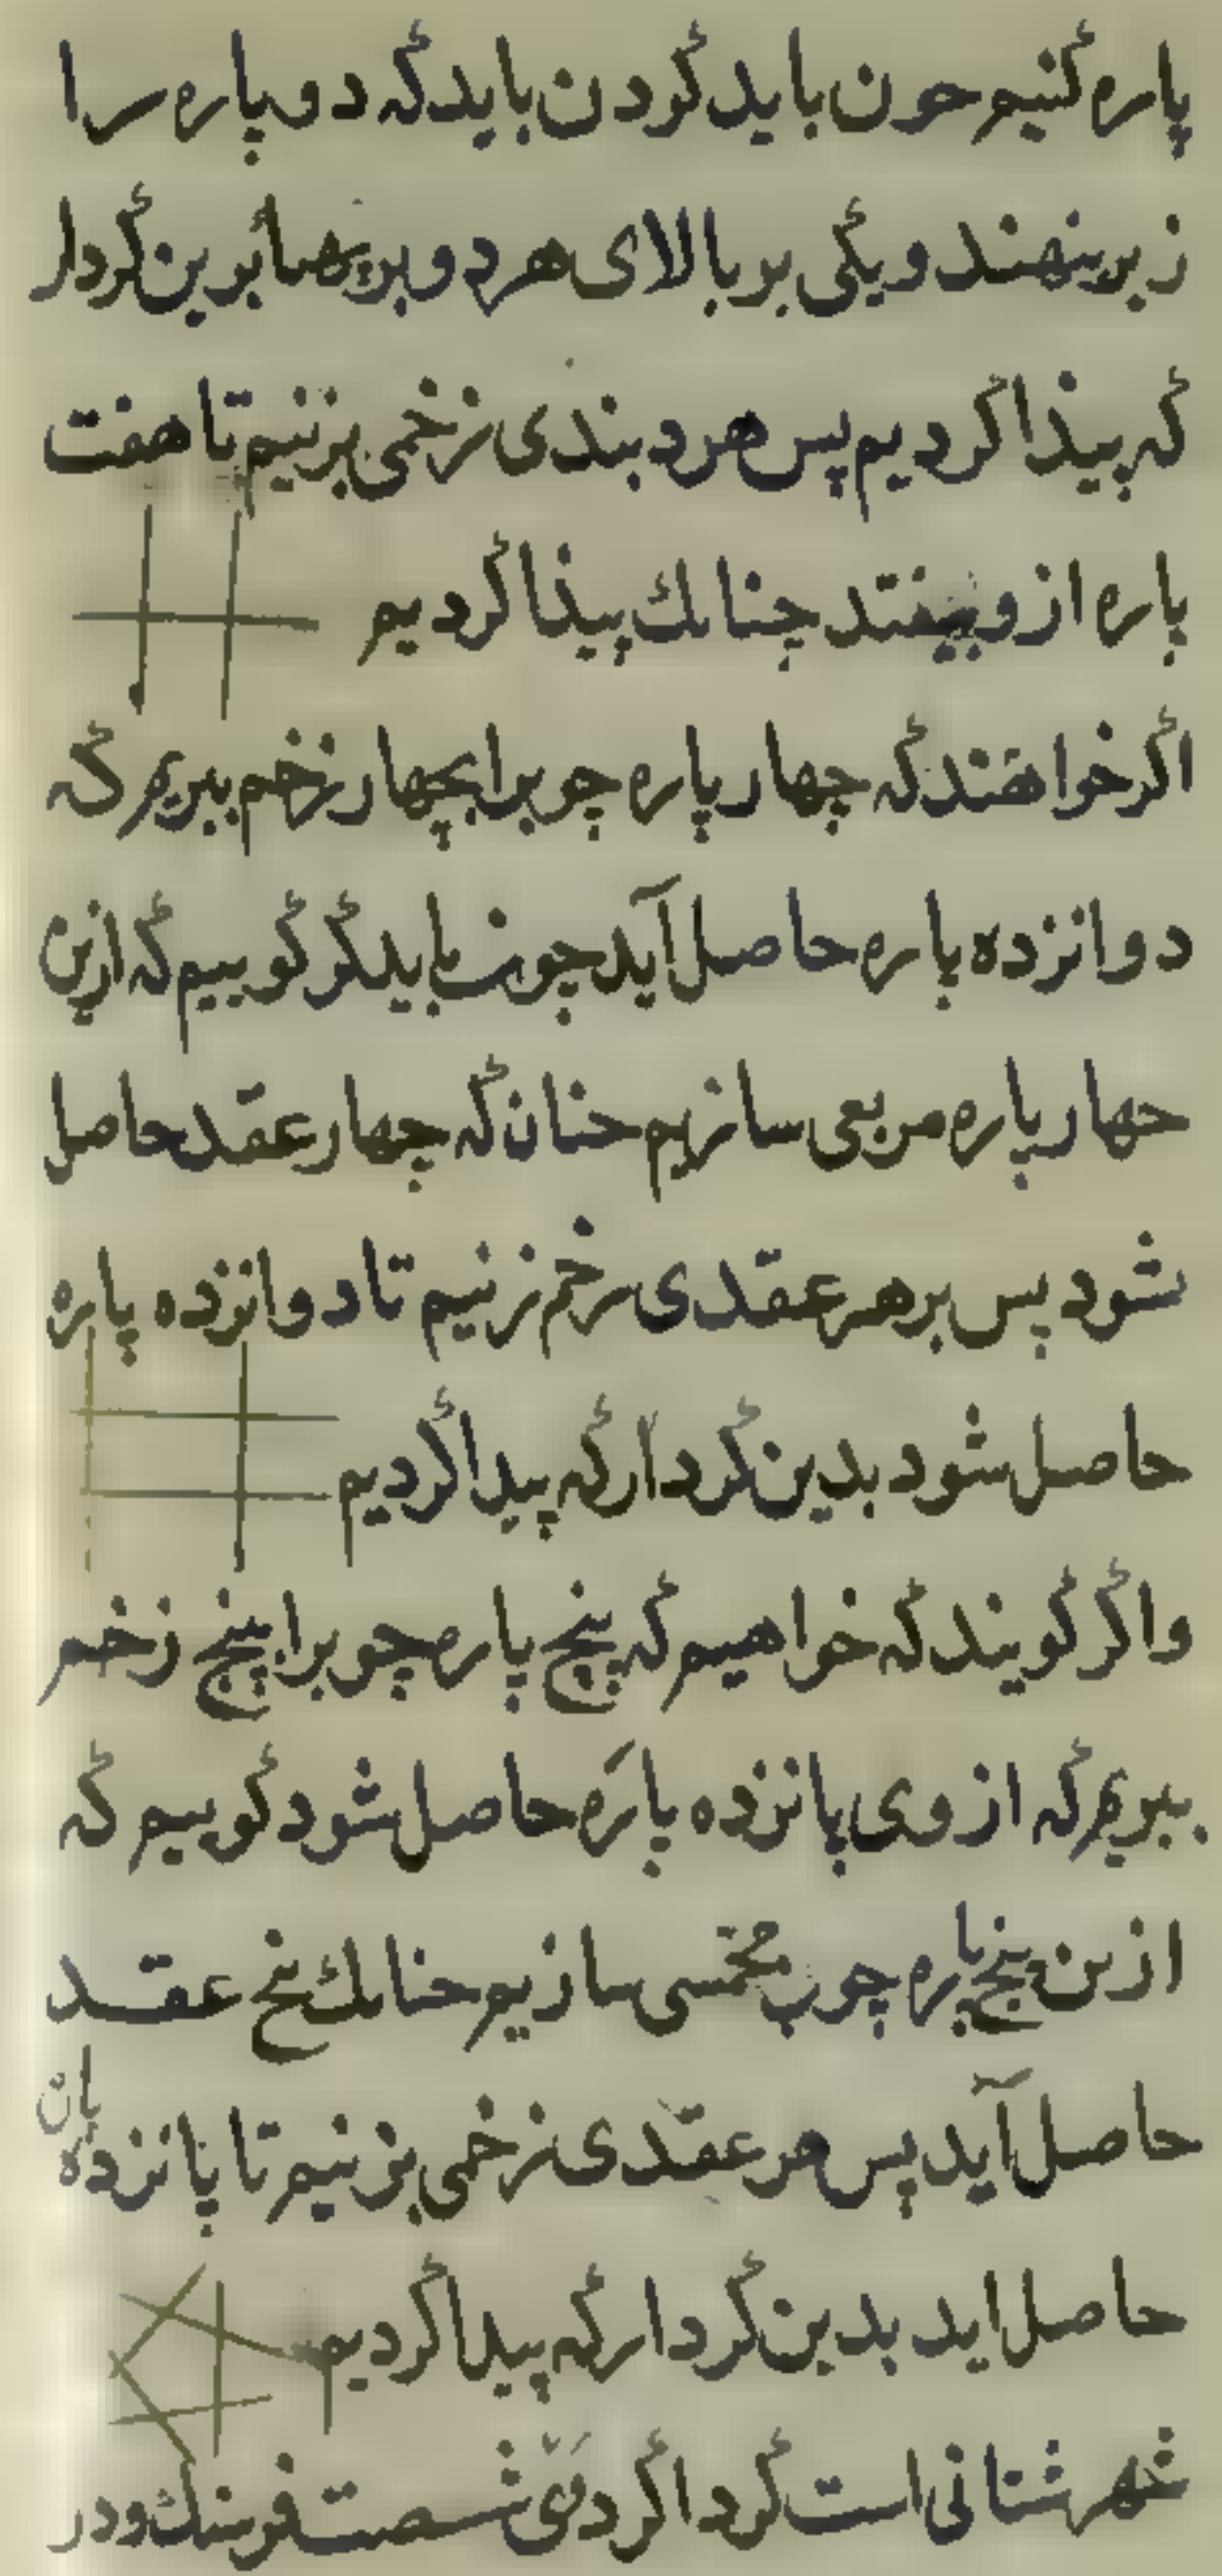 پاره کنیم حون باید کردن باید که دو پاره را
زیر بنهند و یکی بر بالای هر دو برین کردار
که پیذا کردیم پس هر د بندی زخمی بزنیم تا هفت
پاره ازو بیفتد چنانك پیذا کردیم
اکر خواهند که چهار پاره چوبرا بچهار زخم ببریم که
دوانزده پاره حاصل آید چون باید کر کوییم که ازین
حهار پاره مربعی سازیم حنان که چهار عقد حاصل
شود پس بر هر عقدی زخم زنیم تا دوانزده پاره
حاصل شود بدین کردار که پیدا کردیم
واکر کویند که خواهیم که پنج پاره چوبرا پنج زخم
ببریم که از وی پانزده پاره حاصل شود کوییم که
ازین پنج پاره چوب مخمسی سازیم حنانك پنج عقد
حاصل آید پس هر عقدی زخمی بزنیم تا پانزده پاره
حاصل اید بدین کردار که پیدا کردیم
شهرشتانی است کرداکرد وی شصت فرسنك و در